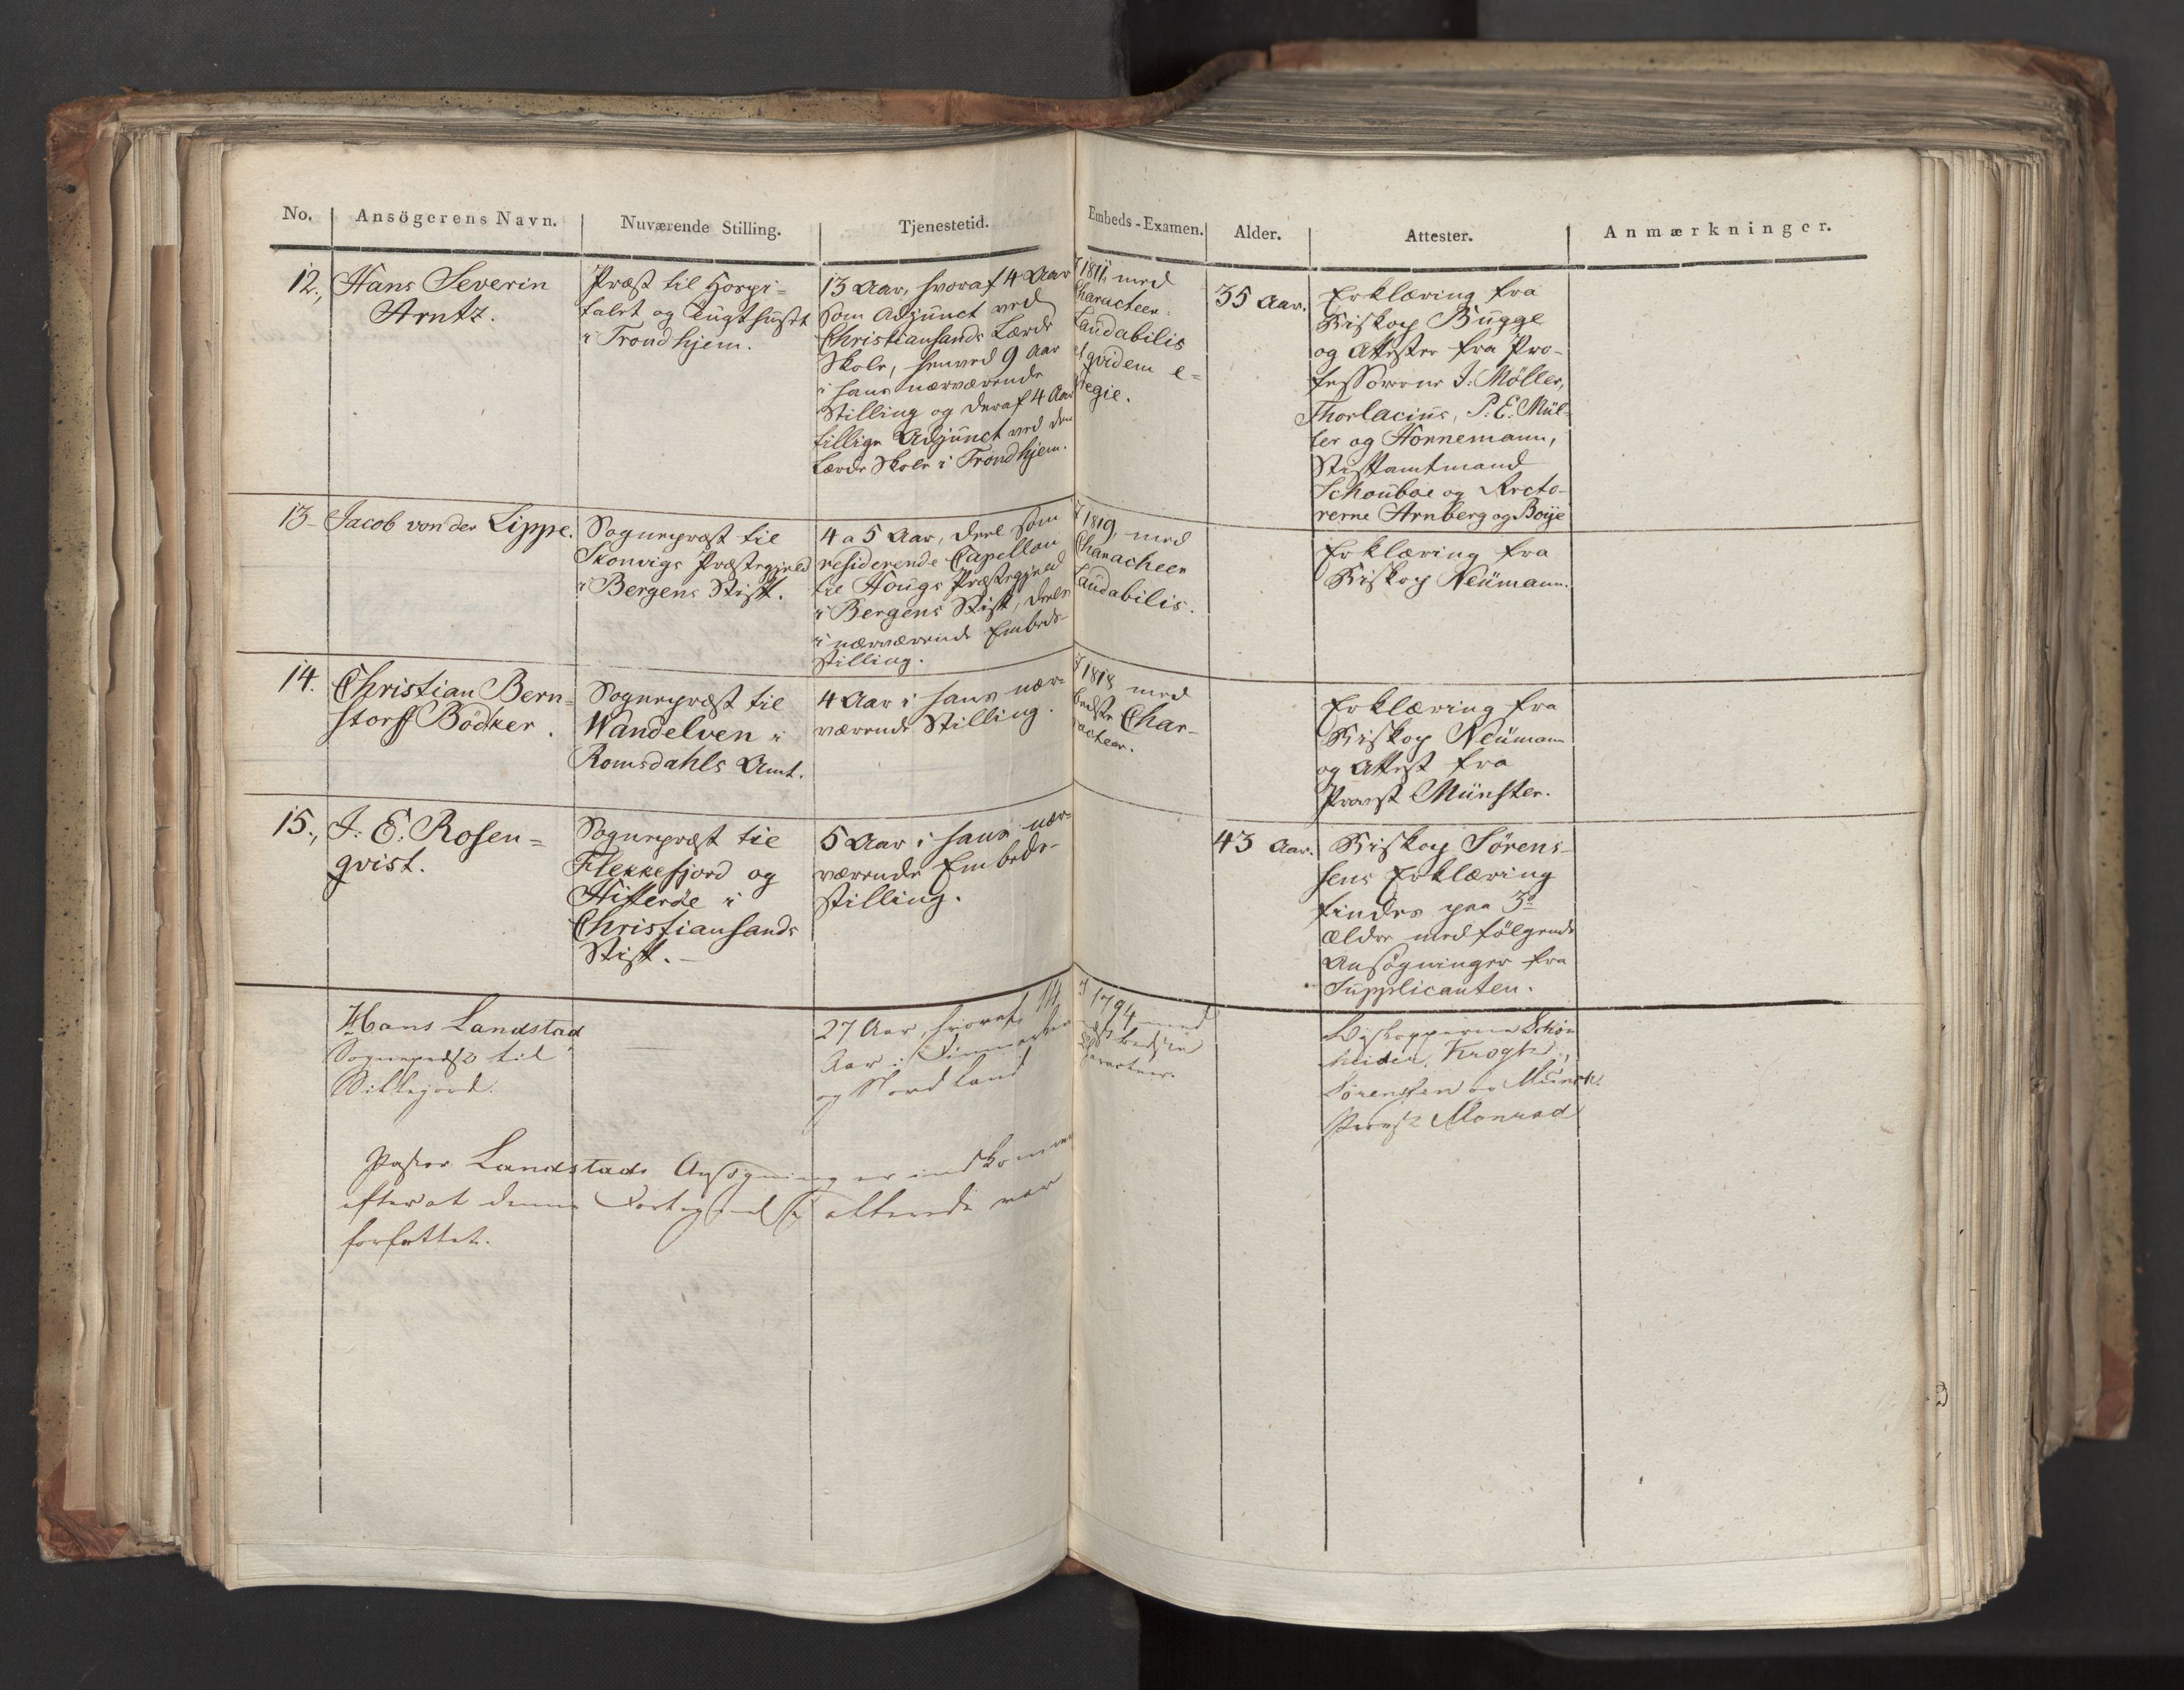 No. Ansögerens Navn. Nuværende Stilling. Tjenestetid. Embeds-Examen. Alder. Attester. Anmærkninger.
12., Hans Severin
Arntz.
Præst til Hospi-
talet og Tugthuset
i Trondhjem.
13 Aar, hvoraf 4 Aar
som Adjunct ved
Christiansands Lærde
Skole, henved 9 Aar
i hans nærværende
Stilling og deraf 4 Aar
tillige Adjunct ved den
Lærde Skole i Trondhjem.
I 1811, med
Characteer:
Laudabilis
et qvidem e-
gregie.
35 Aar.
Erklæring fra
Biskop Bugge
og Attester fra Pro-
fessorerne J: Möller,
Thorlacius, P. E. Mül-
ler og Hornemann,
Stiftamtmand
Schouboe og Recto-
rerne Arnberg og Boÿe
13- Jacob von der Lippe.
Sognepræst til
Skonvigs Præstegjeld
i Bergens Stift.
4 a 5 Aar, deel som
residerende Capellan
til Hougs Præstegjeld
i Bergens Stift, deels
i nærværende Embeds-
stilling.
I 1819, med
Characteer
Laudabilis.
Erklæring fra
Biskop Neumann.
14. Christian Bern-
storff Bödker.
Sognepræst til
Wandelven i
Romsdahls Amt.
4 Aar i hans nær-
værende Stilling.
I 1818 med
bedste Char-
acteer.
Erklæring fra
Biskop Neumann
og Attest fra
Provst Münster.
15., J. E. Rosen-
qvist.
Sognepræst til
Flekkefjord og
Hitteröe i
Christiansands
Stift.-
5 Aar i hans nær-
værende Embeds-
stilling.
43 Aar.
Biskop Sörens-
sens Erklæring
findes paa 3de
ældre medfölgende
Ansögninger fra
Supplicanten.
Hans Landstad
Sognepræst til
Sillejord.
27 Aar, hvoraf 14
Aar i Finmarken
og Nordland
I 1794 med
næst bedste
Characteer.
Biskopperne Schön
heider, Krogh,
Sörenssen og Münch.
Provst Monrad
Pastor Landstads Ansögning er indkommen
efter at denne Fortegnelse allerede var
forfattet.